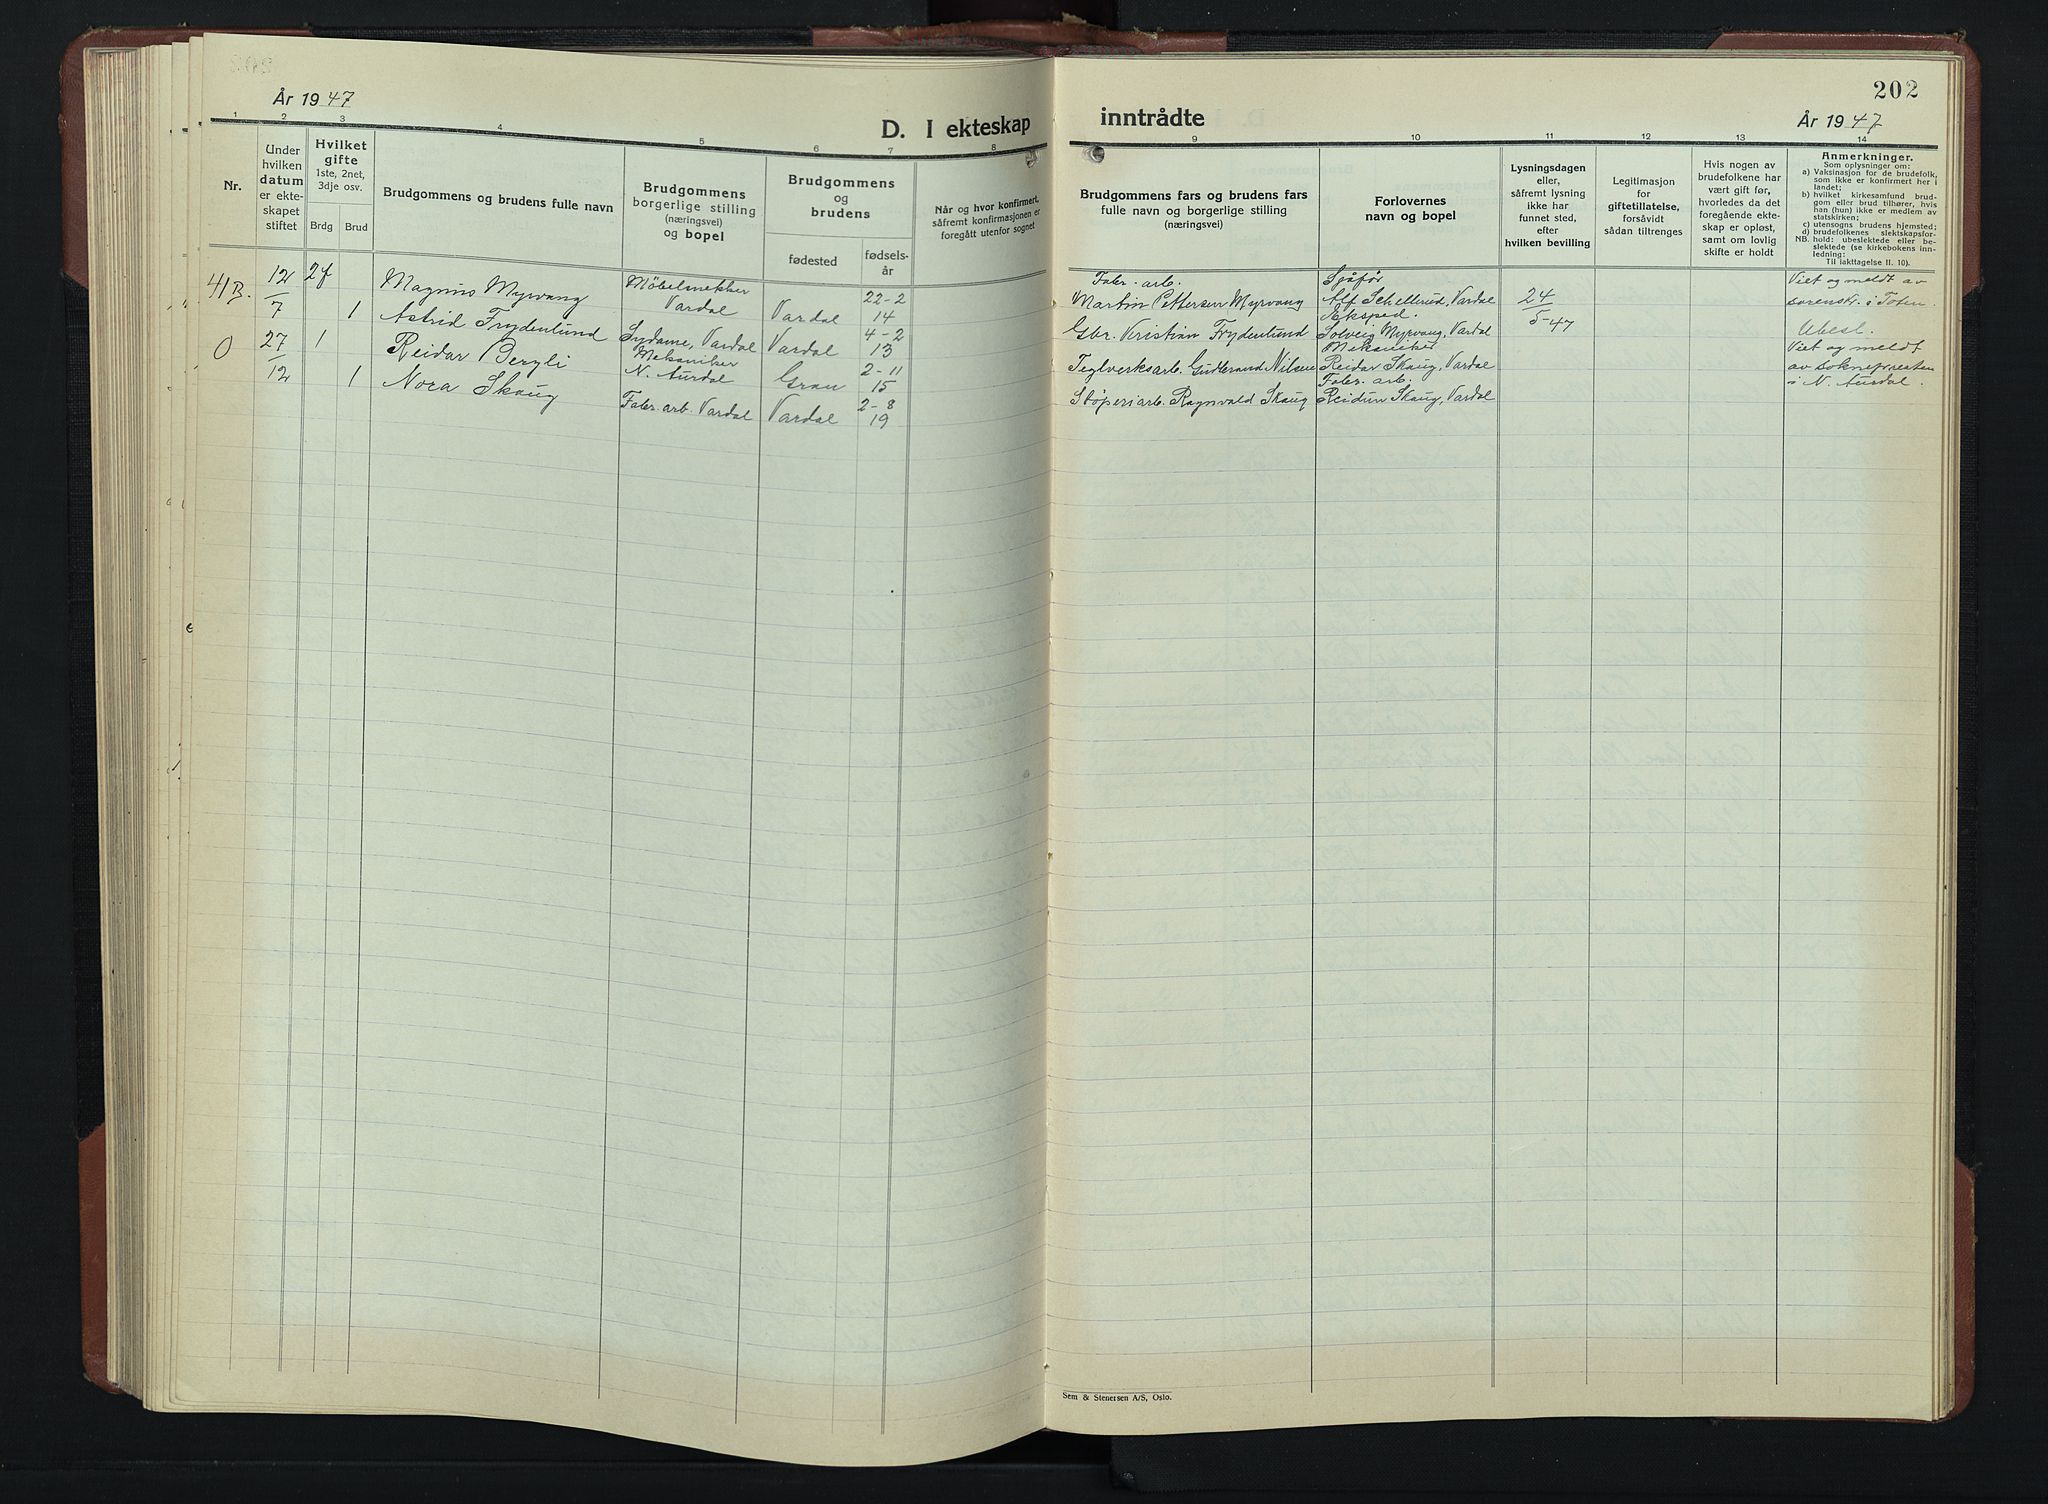 202
År 1947
D. I ekteskap inntrådte
År 1947
1 2 3 4 5 6 7 8 9 10 11 12 13 14
Nr.
Under
hvilken
datum
er ekte-
skapet
stiftet
Hvilket
gifte
1ste, 2net,
3dje osv.
Brdg Brud
Brudgommens og brudens fulle navn
Brudgommens
borgerlige stilling
(næringsvei)
og bopel
Brudgommens
og
brudens
fødested
fødsels-
år
Når og hvor konfirmert,
såfremt konfirmasjonen er
foregått utenfor sognet
Brudgommens fars og brudens fars
fulle navn og borgerlige stilling
(næringsvei)
Forlovernes
navn og bopel
Lysningsdagen
eller,
såfremt lysning
ikke har
funnet sted,
efter
hvilken bevilling
Legitimasjon
for
giftetillatelse,
forsåvidt
sådan tiltrenges
Hvis nogen av
brudefolkene har
vært gift før,
hvorledes da det
foregående ekte-
skap er opløst,
samt om lovlig
skifte er holdt
Anmerkninger.
Som oplysninger om:
a) Vaksinasjon for de brudefolk,
som ikke er konfirmert her i
landet;
b) hvilket kirkesamfund brud-
gom eller brud tilhører, hvis
han (hun) ikke er medlem av
statskirken;
c) utensogns brudens hjemsted;
d) brudefolkenes slektskapsfor-
NB. hold: ubeslektede eller be-
slektede (se kirkebokens inn-
ledning:
Til iakttagelse II. 10).
41B.
12/7
2f
Magnus Myrvang
Møbelsnekker
Vardal
Vardal
22-2
14
1
Astrid Frydenlund
Sydame, Vardal
Vardal
4-2
13
Fabr. arb.
Martin Pettersen Myrvang
Gbr. Kristian Frydenlund
Sjåfør
Alf Schellerud, Vardal
Eksped.
Solveig Myrvang, Vardal
24/5-47
Viet og meldt av
sorenskr. i Toten.
Ubesl.
0
27/12
1
Reidar Bergli
Mekaniker
N. Aurdal
Gran
2-11
15
1
Nora Skaug
Fabr. arb. Vardal
Vardal
2-8
19
Teglverksarb. Gudbrand Nilsen
Støperiarb. Ragnvald Skaug
Mekaniker
Reidar Skaug, Vardal
Fabr. arb.
Reidun Skaug, Vardal
Viet og meldt
av soknepresten
i N. Aurdal.
Sem & Stenersen A/S, Oslo.